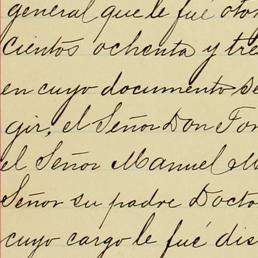 general que le fué otor
cientos ochenta y tre
en cuyo documento se
gir, el Señor Don For
el Señor Manuel M
Señor su padre Docto
cuyo cargo le fué dis